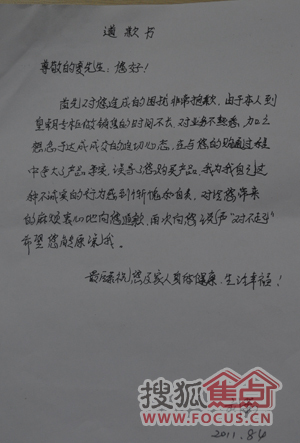 道歉书
尊敬的娄先生：您好！
首先对您造成的困扰非常抱歉，由于本人到
皇朝专柜做销售的时间不久，对业务不熟悉，加之
想急于达成成交的迫切心态，在与您的沟通过程
中夸大了产品事实，误导了您购买产品，我为我自己这
种不诚实的行为感到惭愧和自责，对给您带来
的麻烦衷心地向您道歉，再次向您说声“对不起”
希望您能原谅我。
最后祝您及家人身体健康，生活幸福！
搜狐焦点
FOCUS.CN
WWW.FOCUS.CN
2011.8.4